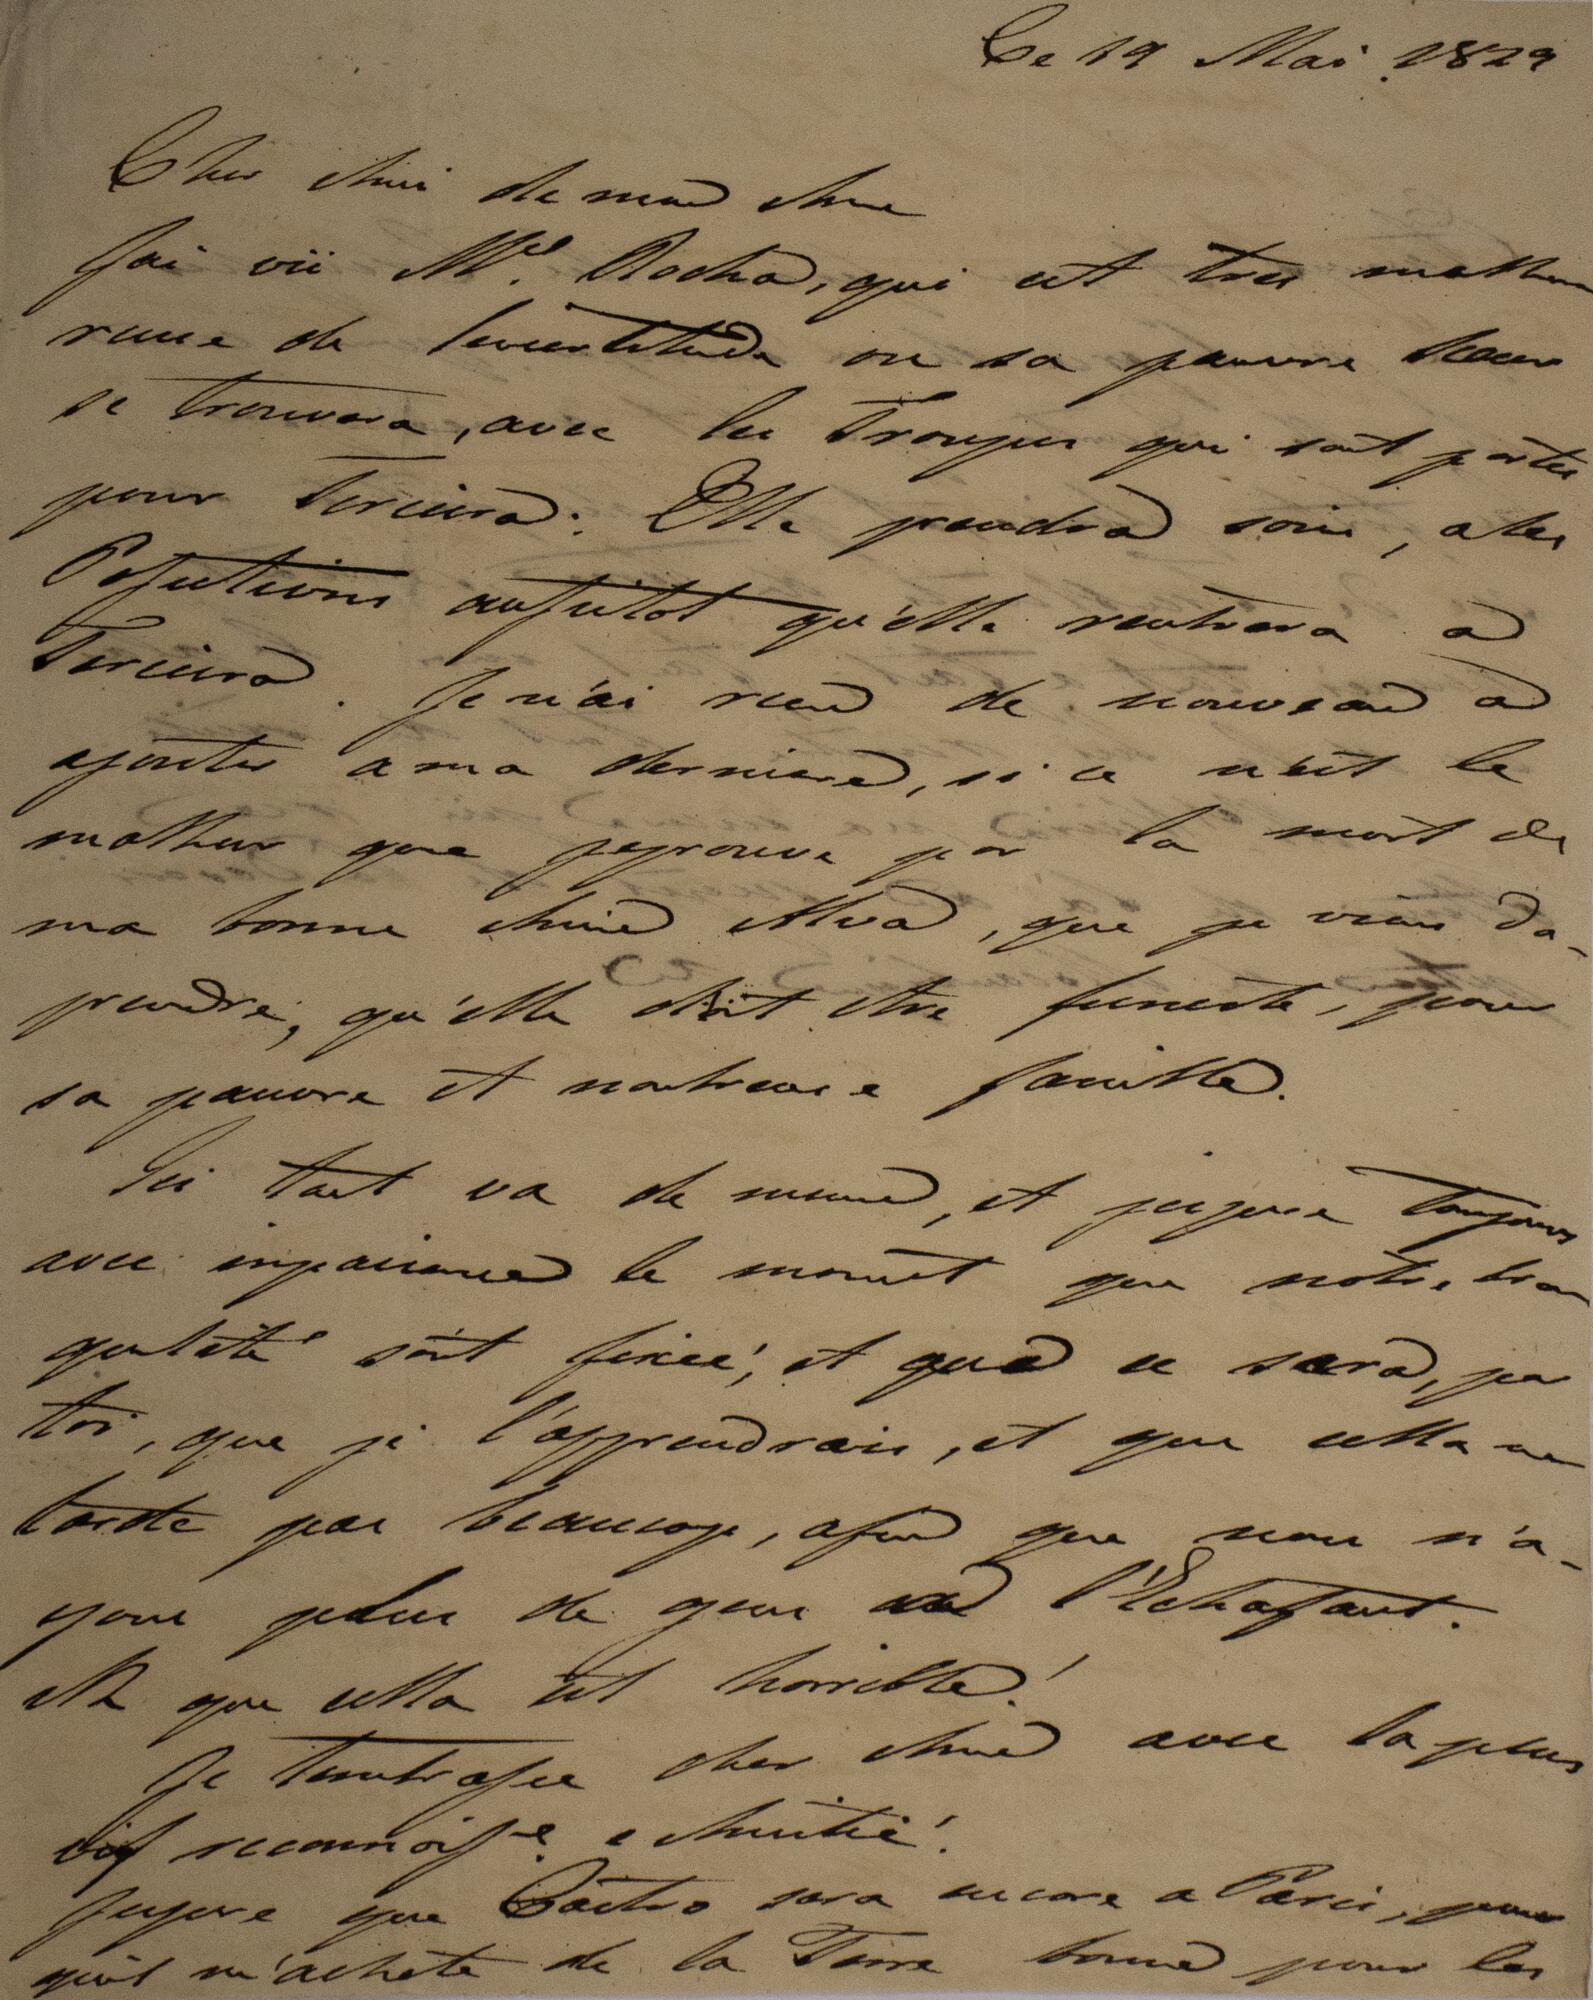 Ce 19 Mai 1829
Cher Ami de mon Ame
J'ai vû Me. Rocha, qui est tres malheu
reuse de l'incertitude ou sa pauvre Soeur
se trouvera, avec les Troupes qui sont partes
pour Terceira. Elle prendra soin, a les
Posessions aussitot qu'elle rentrera a
Terceira. Je n'ai rien de nouveau a
ajouter a ma derniere, si ce n'est le
malheur que jeprouve par la mort de
ma bonne Amie Alva, que je vien d'a-
prendre, qu'elle doit etre funeste, pour
sa pauvre et nombreuse famille.
Ici tout va de meme, et j'espere toujours
avec inpacience le moment que nôtre tran
quileté soit fixée, et que ce sera, par
toi, que je l'apprendrais, et que cella ne
tarde pas beaucoup, afin que nous n'a-
yons plus de gens a l'Echafaut.
Ah que cella est horrible!
Je t'embrasse cher Ami avec la plus
vif reconnoisse. e Amitié!
J'espere que Castro sera encore a Paris, pour
qu'il m'achete de la Terre bonne pour les